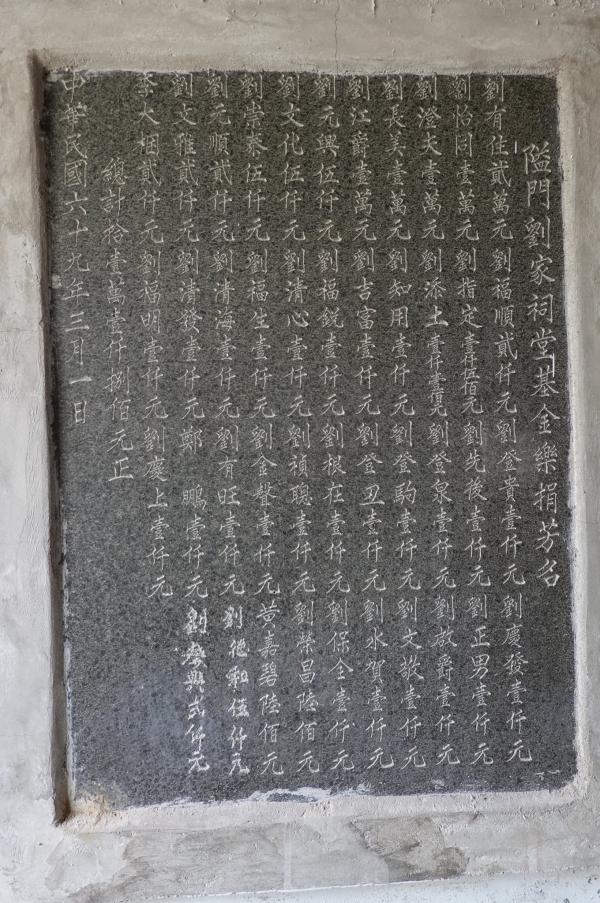 隘門劉家祠堂基金樂捐芳名
劉有住貳萬元 劉福順貳仟元 劉登貴壹仟元 劉慶發壹仟元
劉怡同壹萬元 劉指定壹仟伍佰元 劉先後壹仟元 劉正男壹仟元
劉澄夫壹萬元 劉添土壹仟壹佰元 劉登泉壹仟元 劉啟爵壹仟元
劉長美壹萬元 劉知用壹仟元 劉登駒壹仟元 劉文敬壹仟元
劉江爵壹萬元 劉吉富壹仟元 劉登丑壹仟元 劉永賀壹仟元
劉元興伍仟元 劉福銳壹仟元 劉根在壹仟元 劉保全壹仟元
劉文化伍仟元 劉清心壹仟元 劉禎聰壹仟元 劉榮昌陸佰元
劉崇泰伍仟元 劉福生壹仟元 劉金聲壹仟元 黃嘉碧陸佰元
劉元順貳仟元 劉清海壹仟元 劉有旺壹仟元 劉德和伍仟元
劉文雅貳仟元 劉清發壹仟元 鄭 鵬壹仟元 劉 興弍仟元
李大栶貳仟元 劉福明壹仟元 劉慶上壹仟元
總計拾壹萬壹仟捌佰元正
中華民國六十九年三月一日